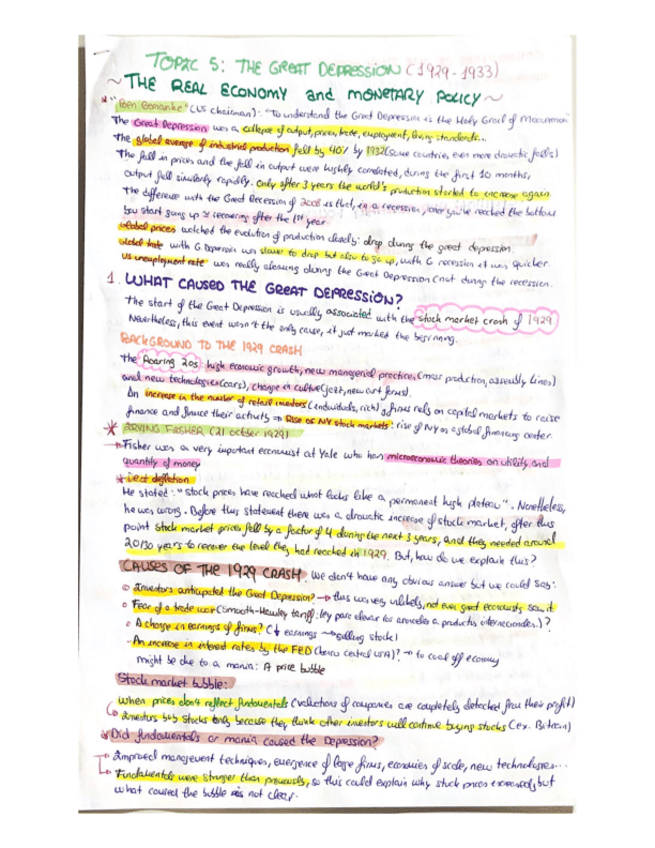 TOPIC 5: THE GREAT DEPRESSION (1929-1933)
~ THE REAL ECONOMY and MONETARY POLICY ~
"Ben Bernanke" (US chairman): "To understand the Great Depression is the Holy Grail of Macroeconomics"
The Great Depression was a collapse of output, prices, trade, employment, living standards...
The global average of industrial production fell by 40% by 1932 (some countries, even more dramatic falls)
The fall in prices and the fall in output were highly correlated, during the first 10 months,
output fell similarly rapidly. Only after 3 years the world's production started to increase again.
The difference with the Great Recession of 2008 is that, in a recession, once you've reached the bottom
you start going up & recovering after the 1st year.
Global prices matched the evolution of production closely: drop during the great depression.
Global trade with G Depression was slower to drop but also to go up, with G recession it was quicker.
US unemployment rate was really alarming during the Great Depression (not during the recession.
1. WHAT CAUSED THE GREAT DEPRESSION?
The start of the Great Depression is usually associated with the stock market crash of 1929
Nevertheless, this event wasn't the only cause, it just marked the beginning.
BACKGROUND TO THE 1929 CRASH
The Roaring 20s: high economic growth, new managerial practices (mass production, assembly lines)
and new technologies (cars), change in culture (jazz, new art forms).
An increase in the number of retail investors (individuals, rich) & firms rely on capital markets to raise
finance and finance their activity → Rise of NY stock markets: rise of NY as a global financing center.
* IRVING FISHER (21 october 1929)
→ Fisher was a very important economist at Yale who has microeconomic theories on utility and
quantity of money
* Debt deflation
He stated: "stock prices have reached what looks like a permanent high plateau". Nonetheless,
he was wrong. Before this statement there was a dramatic increase of stock market, after this
point stock market prices fell by a factor of 4 during the next 3 years, and they needed around
20/30 years to recover the level they had reached in 1929. But, how do we explain this?
CAUSES OF THE 1929 CRASH. We don't have any obvious answer but we could say:
o Investors anticipated the Great Depression? → this was very unlikely, not even good economists saw it
o Fear of a trade war (Smooth-Hawley tariff: ley para elevar los aranceles a productos internacionales.)?
o A change in earnings of firms? (↓ earnings → selling stocks)
- An increase in interest rates by the FED (banco central USA)? → to cool off economy
might be due to a mania: A price bubble
Stock market bubble:
When prices don't reflect fundamentals (valuations of companies are completely detached from their profit)
Investors buy stocks only because they think other investors will continue buying stocks (ex. Bitcoin)
Did fundamentals or mania caused the Depression?
→ Improved management techniques, emergence of large firms, economies of scale, new technologies...
→ Fundamentals were stronger than previously, so this could explain why stock prices increased, but
what caused the bubble is not clear.